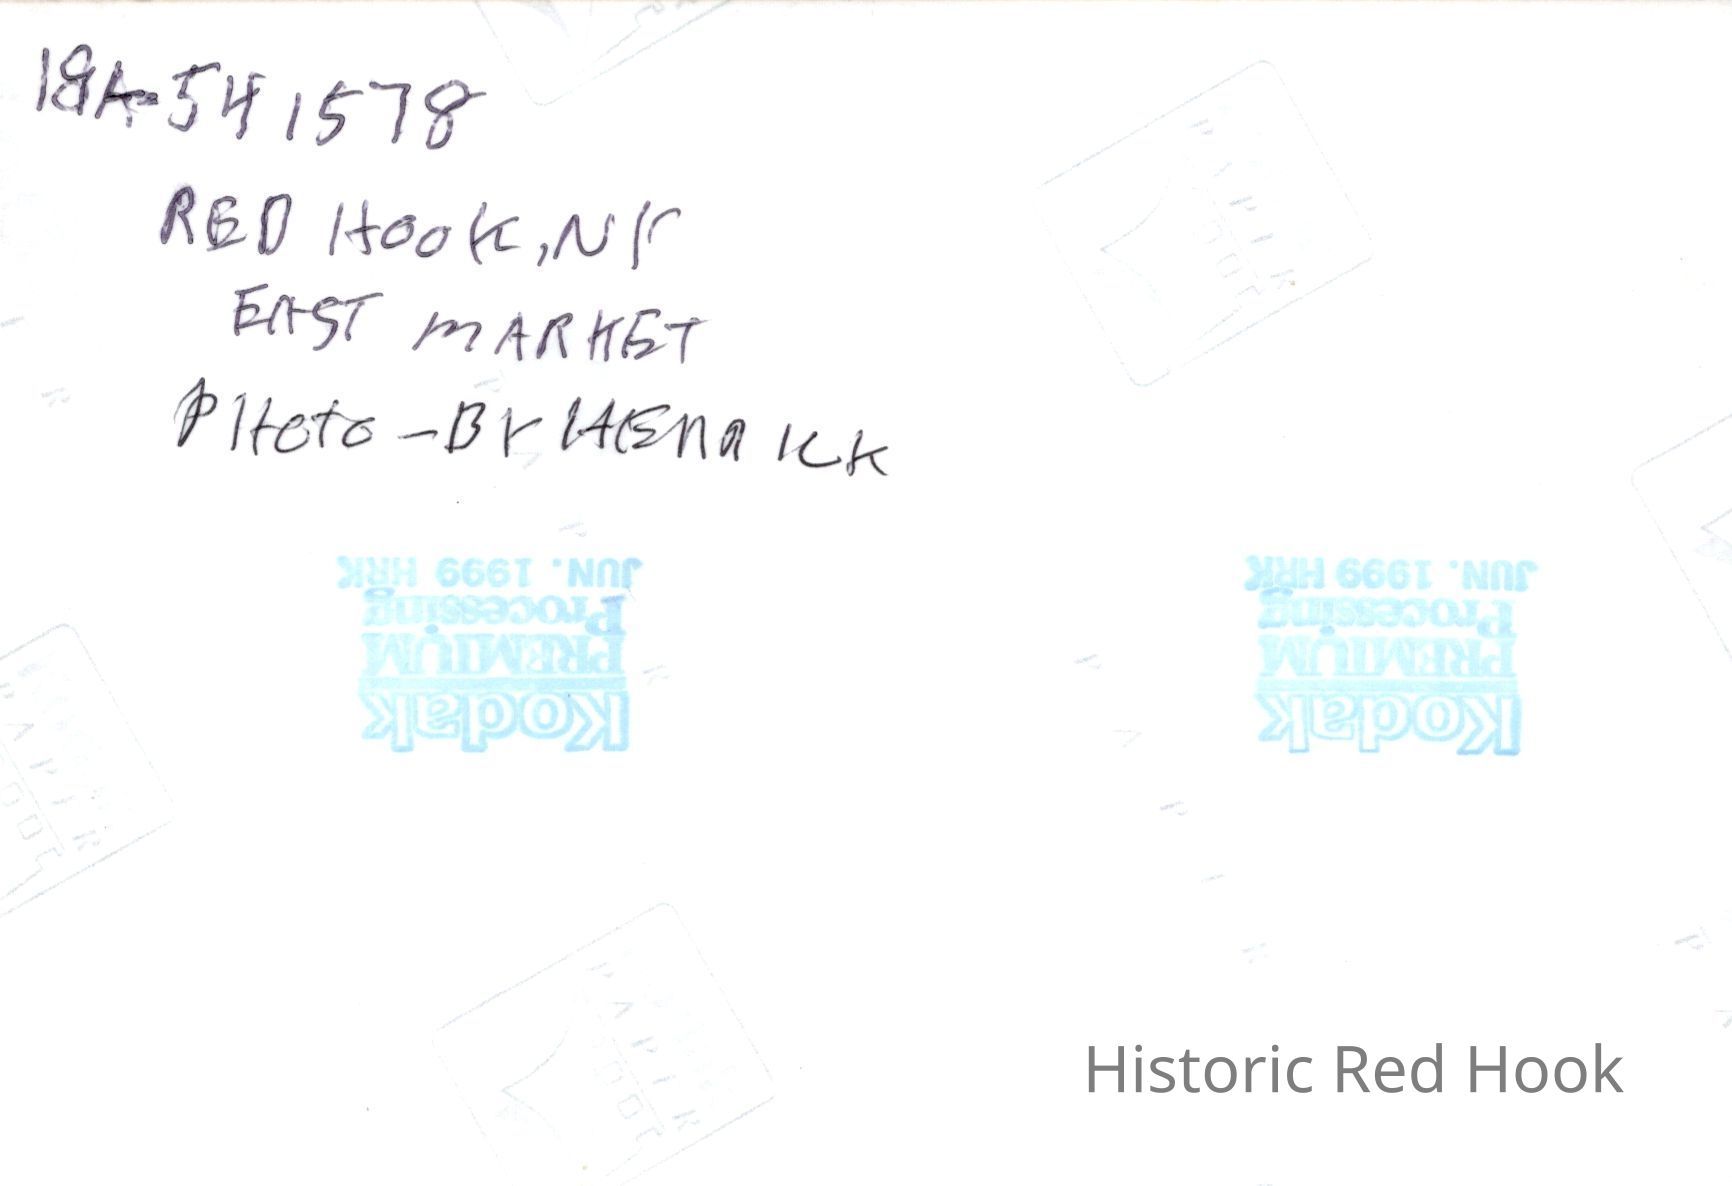 18A-541578
RED HOOK, NY
EAST MARKET
PHOTO-BY
JUN. 1999 HRK
Processing
PREMIUM
Kodak
JUN. 1999 HRK
Processing
PREMIUM
Kodak
Historic Red Hook